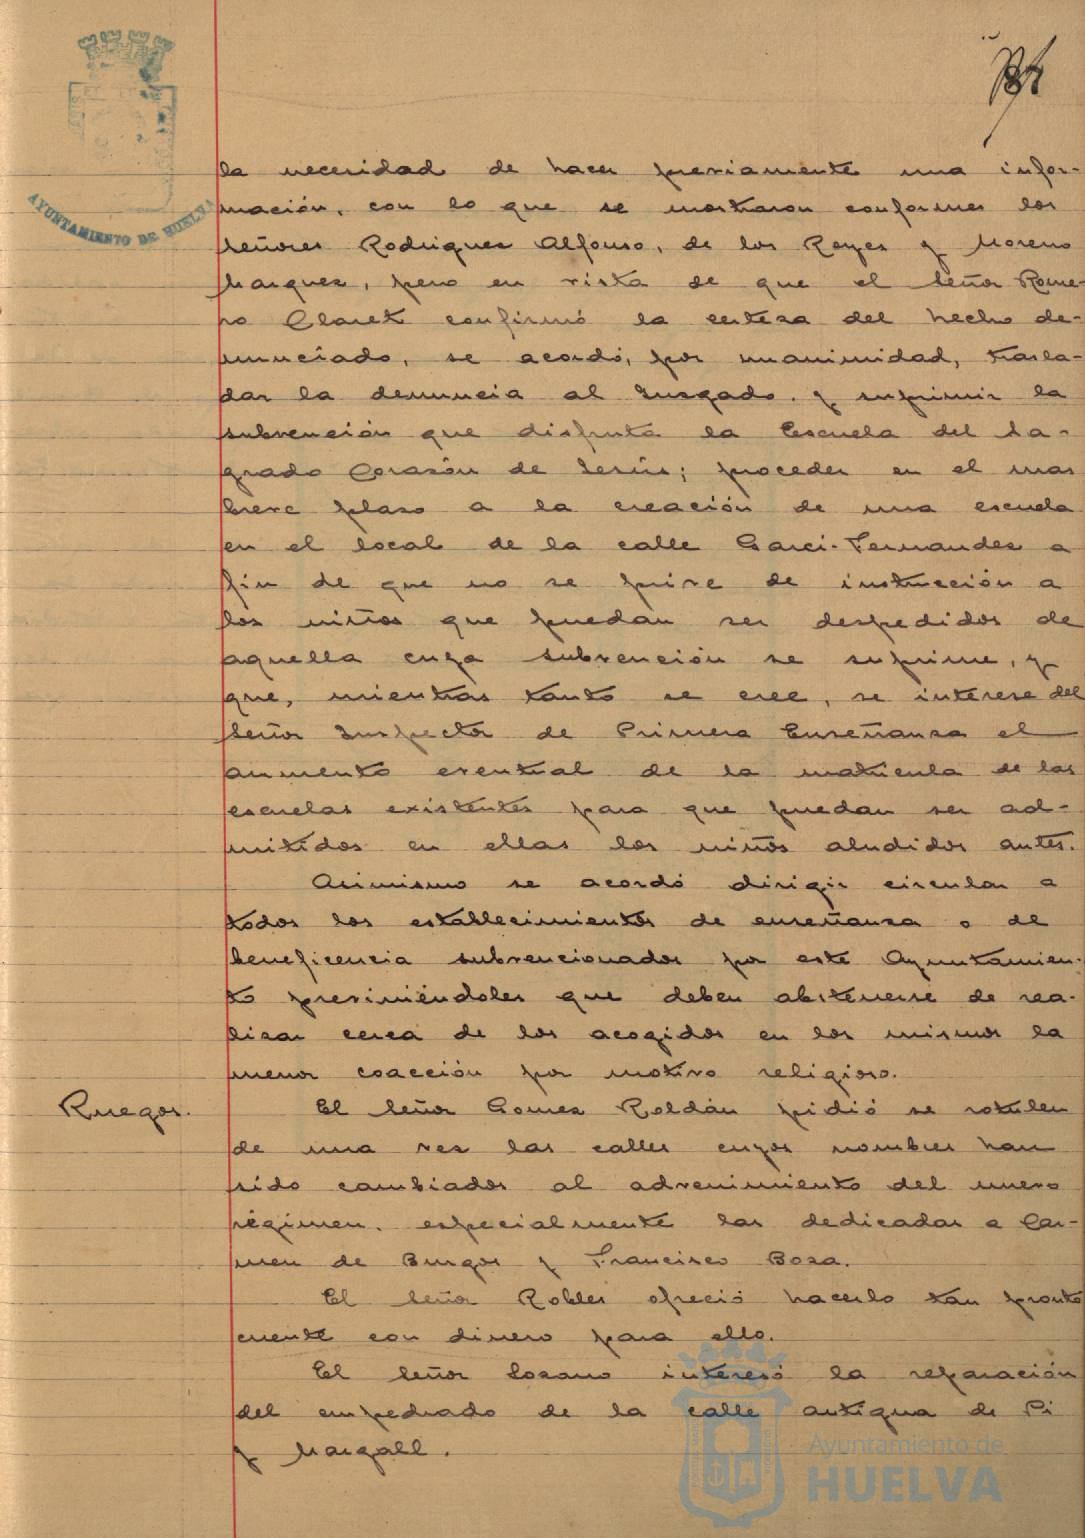 AYUNTAMIENTO DE HUELVA
la necesidad de hacer previamente una infor-
mación, con lo que se mostraron conformes los
Señores Rodriguez Alfonso, de los Reyes y Moreno
Marquez, pero en vista de que el Señor Rome-
ro Claret confirmó la certeza del hecho de-
nunciado, se acordó, por unanimidad, trasla-
dar la denuncia al Juzgado y suprimir la
subvención que disfruta la Escuela del Sa-
grado Corazón de Jesús; proceder en el mas
breve plazo a la creación de una escuela
en el local de la calle Garci-Fernandez a
fin de que no se prive de instrucción a
los niños que puedan ser despedidos de
aquella cuya subvención se suprime, y
que, mientras tanto se cree, se interese del
Señor Inspector de Primera Enseñanza el
aumento eventual de la matricula de las
escuelas existentes para que puedan ser ad-
mitidos en ellas los niños aludidos antes.
Asimismo se acordó dirigir circular a
todos los establecimientos de enseñanza o de
beneficencia subvencionados por este Ayuntamien-
to previniéndoles que deben abstenerse de rea-
lizar cerca de los acogidos en los mismos la
menor coacción por motivo religioso.
Ruegos.
El Señor Gomez Roldán pidió se rotulen
de una vez las calles cuyos nombres han
sido cambiados al advenimiento del nuevo
régimen, especialmente las dedicadas a Car-
men de Burgos y Francisco Boza.
El Señor Robles ofreció hacerlo tan pronto
cuente con dinero para ello.
El Señor Lozano interesó la reparación
del empedrado de la calle antigua de Pi
y Margall.
Ayuntamiento de
HUELVA